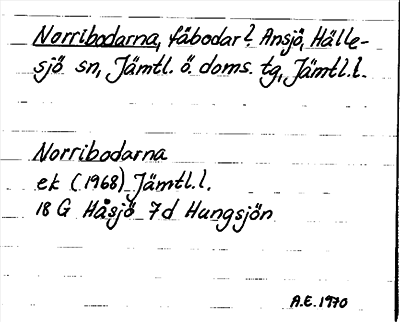 Norribodarna, fäbodar? Ansjö, Hälle-
sjö sn, Jämtl. ö. doms. tg, Jämtl.l.
Norribodarna
ek (1968) Jämtl.l.
18 G Håsjö 7d Hungsjön
A.E. 1970